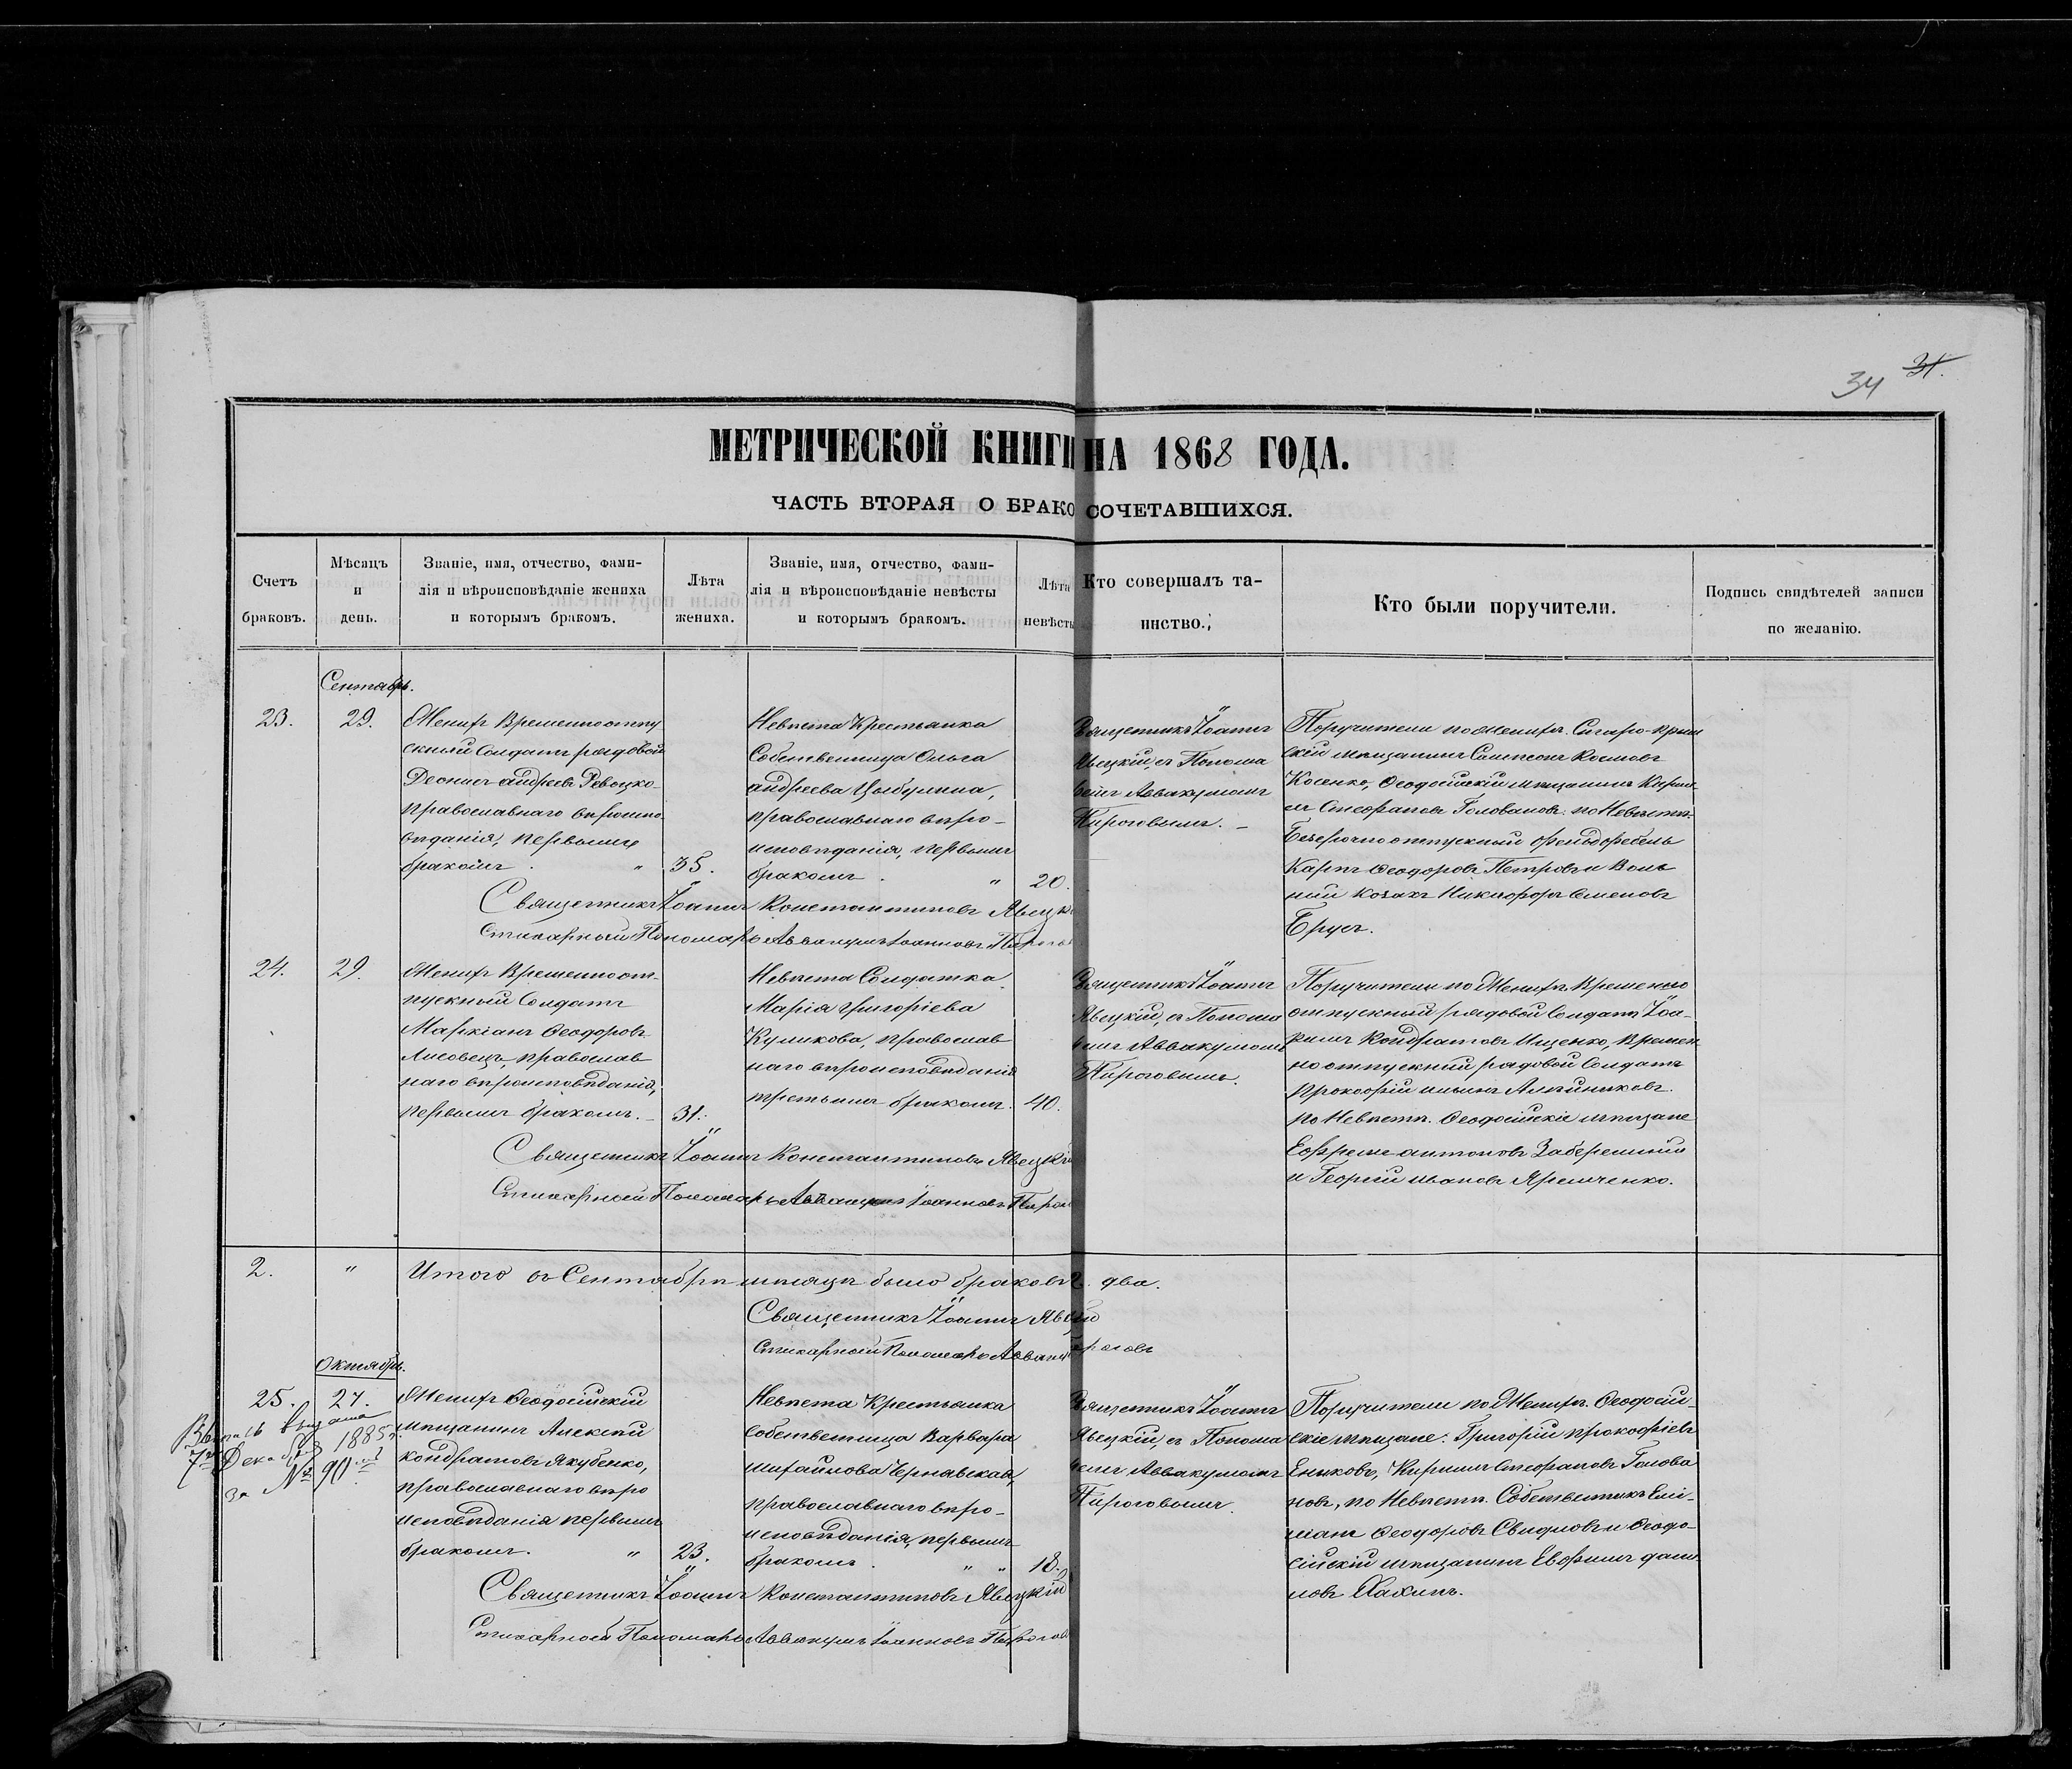 34 31.
МЕТРИЧЕСКОЙ КНИГИ НА 1868 ГОДА.
ЧАСТЬ ВТОРАЯ О БРАКОСОЧЕТАВШИХСЯ.
Счетъ браковъ.
Мѣсяцъ и день.
Званіе, имя, отчество, фами-
лія и вѣроисповѣданіе жениха
и которымъ бракомъ.
Лѣта жениха.
Званіе, имя, отчество, фами-
лія и вѣроисповѣданіе невѣсты
и которымъ бракомъ.
Лѣта невѣсты
Кто совершалъ та-
инство.
Кто были поручители.
Подпись свидѣтелей записи
по желанію.
Сентябрь.
23.
29.
Женихъ Временноотпу
скный Солдатъ рядовой
Деонис Андреевъ Ревоцко
православнаго вѣроиспо
вѣданія, первымъ
бракомъ. „
35.
Невѣста Крестьянка
Собственница Ольга
Андреева Цыбулкина,
православнаго вѣро-
исповѣданія, первымъ
бракомъ. „
20.
Священникъ Іоаннъ
Явецкій, съ Понома
ремъ Аввакумомъ
Пироговымъ. –
Поручители по Женихѣ. Старо-крым
скій мѣщанинъ Сампсонъ Космовъ
Косенко, Ѳеодосійскій мѣщанинъ Кирил
лъ Стефановъ Головановъ. по Невѣстѣ:
Безсрочноотпускный фельдфебель
Карпъ Ѳеодоровъ Петровъ и Воль
ный козакъ Никифоръ Семеновъ
Брусъ.
Священникъ Іоаннъ Константиновъ Явецкі
Стихарный Пономарь Аввакумъ Іоанновъ Пирого
24.
29.
Женихъ Временноот-
пускный Солдатъ
Маркіанъ Ѳеодоровъ
Лисовецъ, православ
наго вѣроисповѣданія,
первымъ бракомъ. –
31.
Невѣста Солдатка
Марія Григоріева
Куликова, православ
наго вѣроисповѣданія
третьимъ бракомъ.
40.
Священникъ Іоаннъ
Явецкій, съ Понома
ремъ Аввакумомъ
Пироговымъ.
Поручители по Женихѣ Временно
отпускный рядовой Солдатъ Іоа-
кимъ Кондратовъ Ищенко, Времен
ноотпускный рядовой Солдатъ
Прокофій Ильинъ
по Невѣстѣ. Ѳеодосійскіе мѣщане
Ефремъ Антоновъ
и Георгій Ивановъ Яремченко.
Священникъ Іоаннъ Константиновъ Явецкій
Стихарный Пономарь Аввакумъ Іоанновъ Пирог
2. „ Итого въ Сентябрѣ мѣсяцѣ было браковъ 2. два.
Священникъ Іоаннъ Явецкій
Стихарный Пономарь Аввакумъ Пироговъ
Октябрь.
25.
27.
Выпись выдана
7го Декабря 1885 г.
за № 90
Женихъ Ѳеодосійскій
мѣщанинъ Алексѣй
Кондратовъ Якубенко,
православнаго вѣро
исповѣданія первымъ
бракомъ. „
23.
Невѣста Крестьянка
собственница Варвара
Михайлова Чернавская,
православнаго вѣро-
исповѣданія, первымъ
бракомъ. „ „
18.
Священникъ Іоаннъ
Явецкій, съ Понома
ремъ Аввакумомъ
Пироговымъ.
Поручители по Женихѣ. Ѳеодосій-
скіе мѣщане: Григорій Прокофіевъ
Ениковъ, Кириллъ Стефановъ Голова
новъ, по Невѣстѣ. Собственникъ Емі-
ліанъ Ѳеодоровъ Свидловъ и Ѳеодо-
сійскій мѣщанинъ Евфимъ Дани
ловъ Хахинъ.
Священникъ Іоаннъ Константиновъ Явецкій
Стихарный Пономарь Аввакумъ Іоанновъ Пирогов